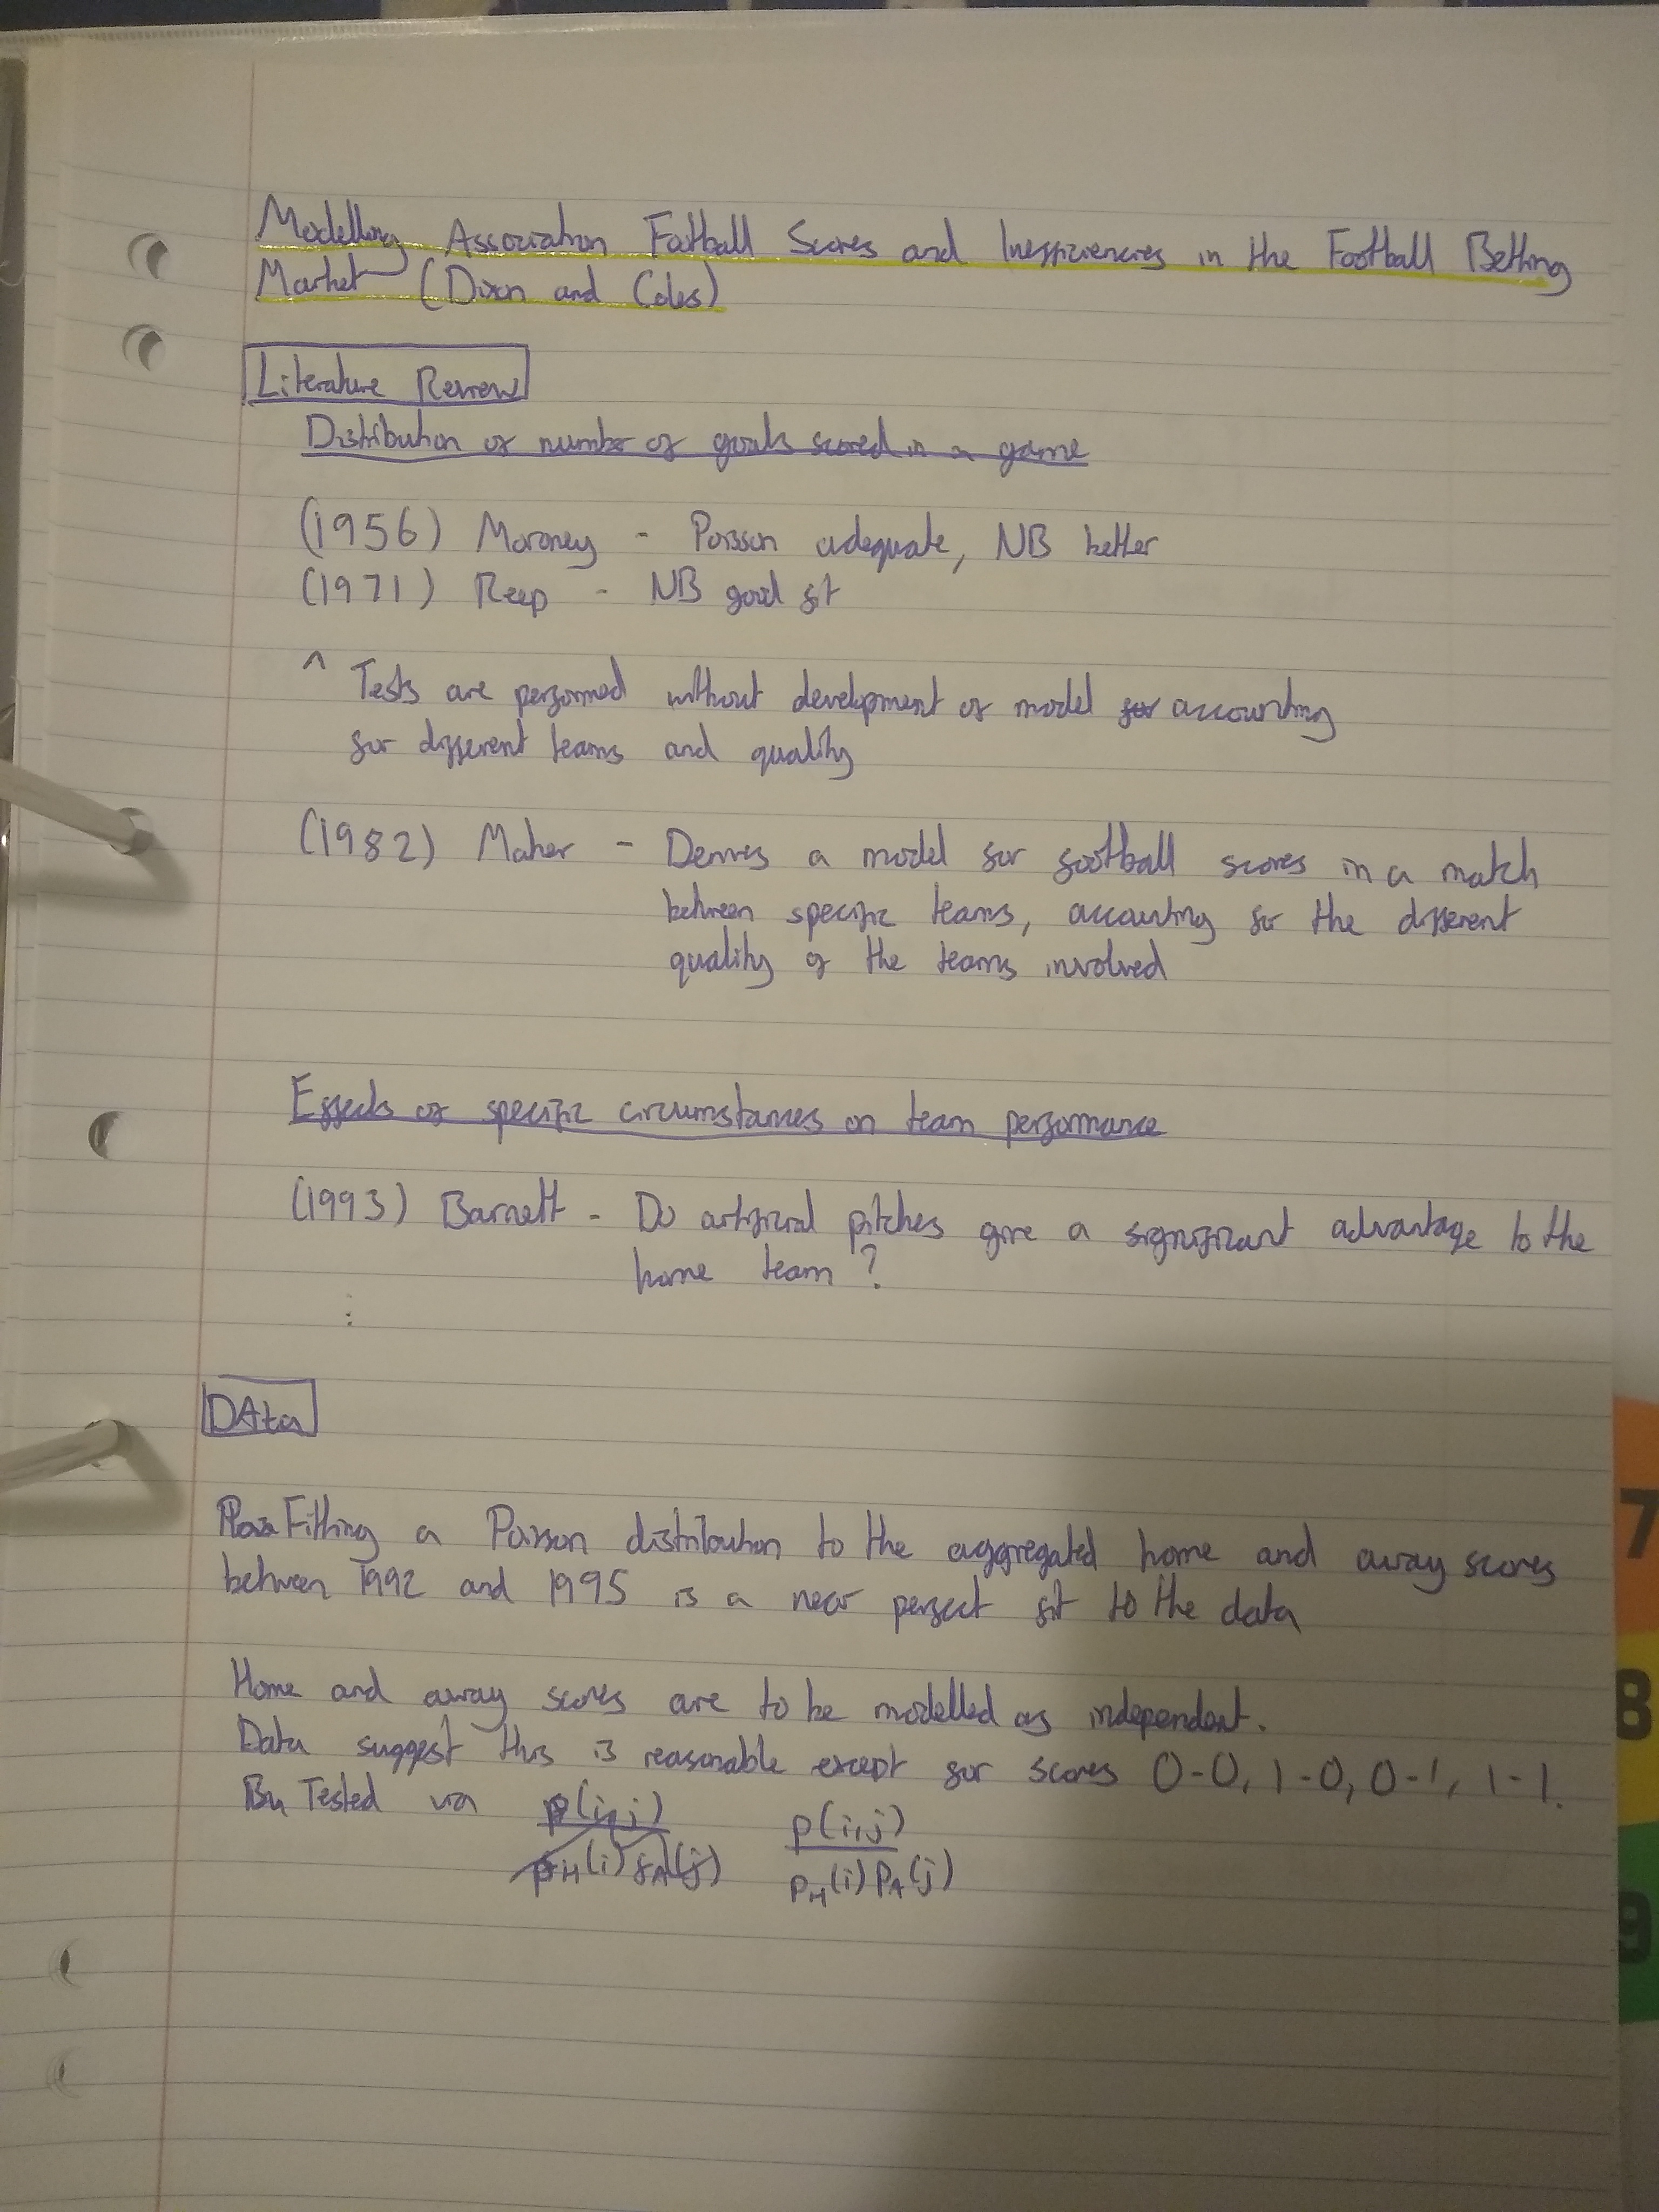 Modelling Association Football Scores and Inefficiencies in the Football Betting
Market (Dixon and Coles)
Literature Review
Distribution of number of goals scored in a game
(1956) Moroney - Poisson adequate, NB better
(1971) Reep - NB good fit
^ Tests are performed without development of model for accounting
for different teams and quality
(1982) Maher - Derives a model for football scores in a match
between specific teams, accounting for the different
quality of the teams involved
Effects of specific circumstances on team performance
(1993) Barnett - Do artificial pitches give a significant advantage to the
home team?
⋮
DAta
Fitting a Poisson distribution to the aggregated home and away scores
between 1992 and 1995 is a near perfect fit to the data
Home and away scores are to be modelled as independent.
Data suggest this is reasonable except for scores 0-0, 1-0, 0-1, 1-1.
Tested via p(i,j) p(i,j)
pH(i) fA(j) pH(i) pA(j)
7
8
9